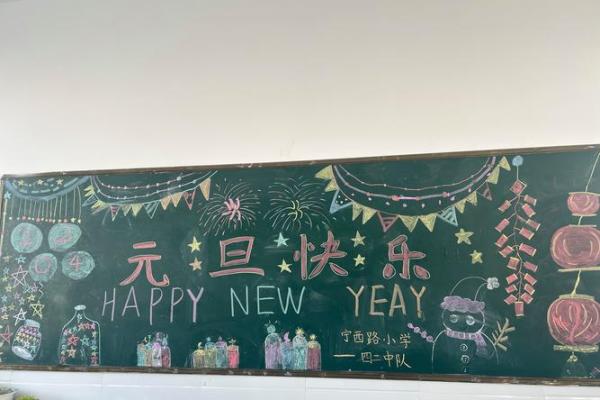 元旦快乐
HAPPY NEW YEAY
宁西路小学
一四二中队